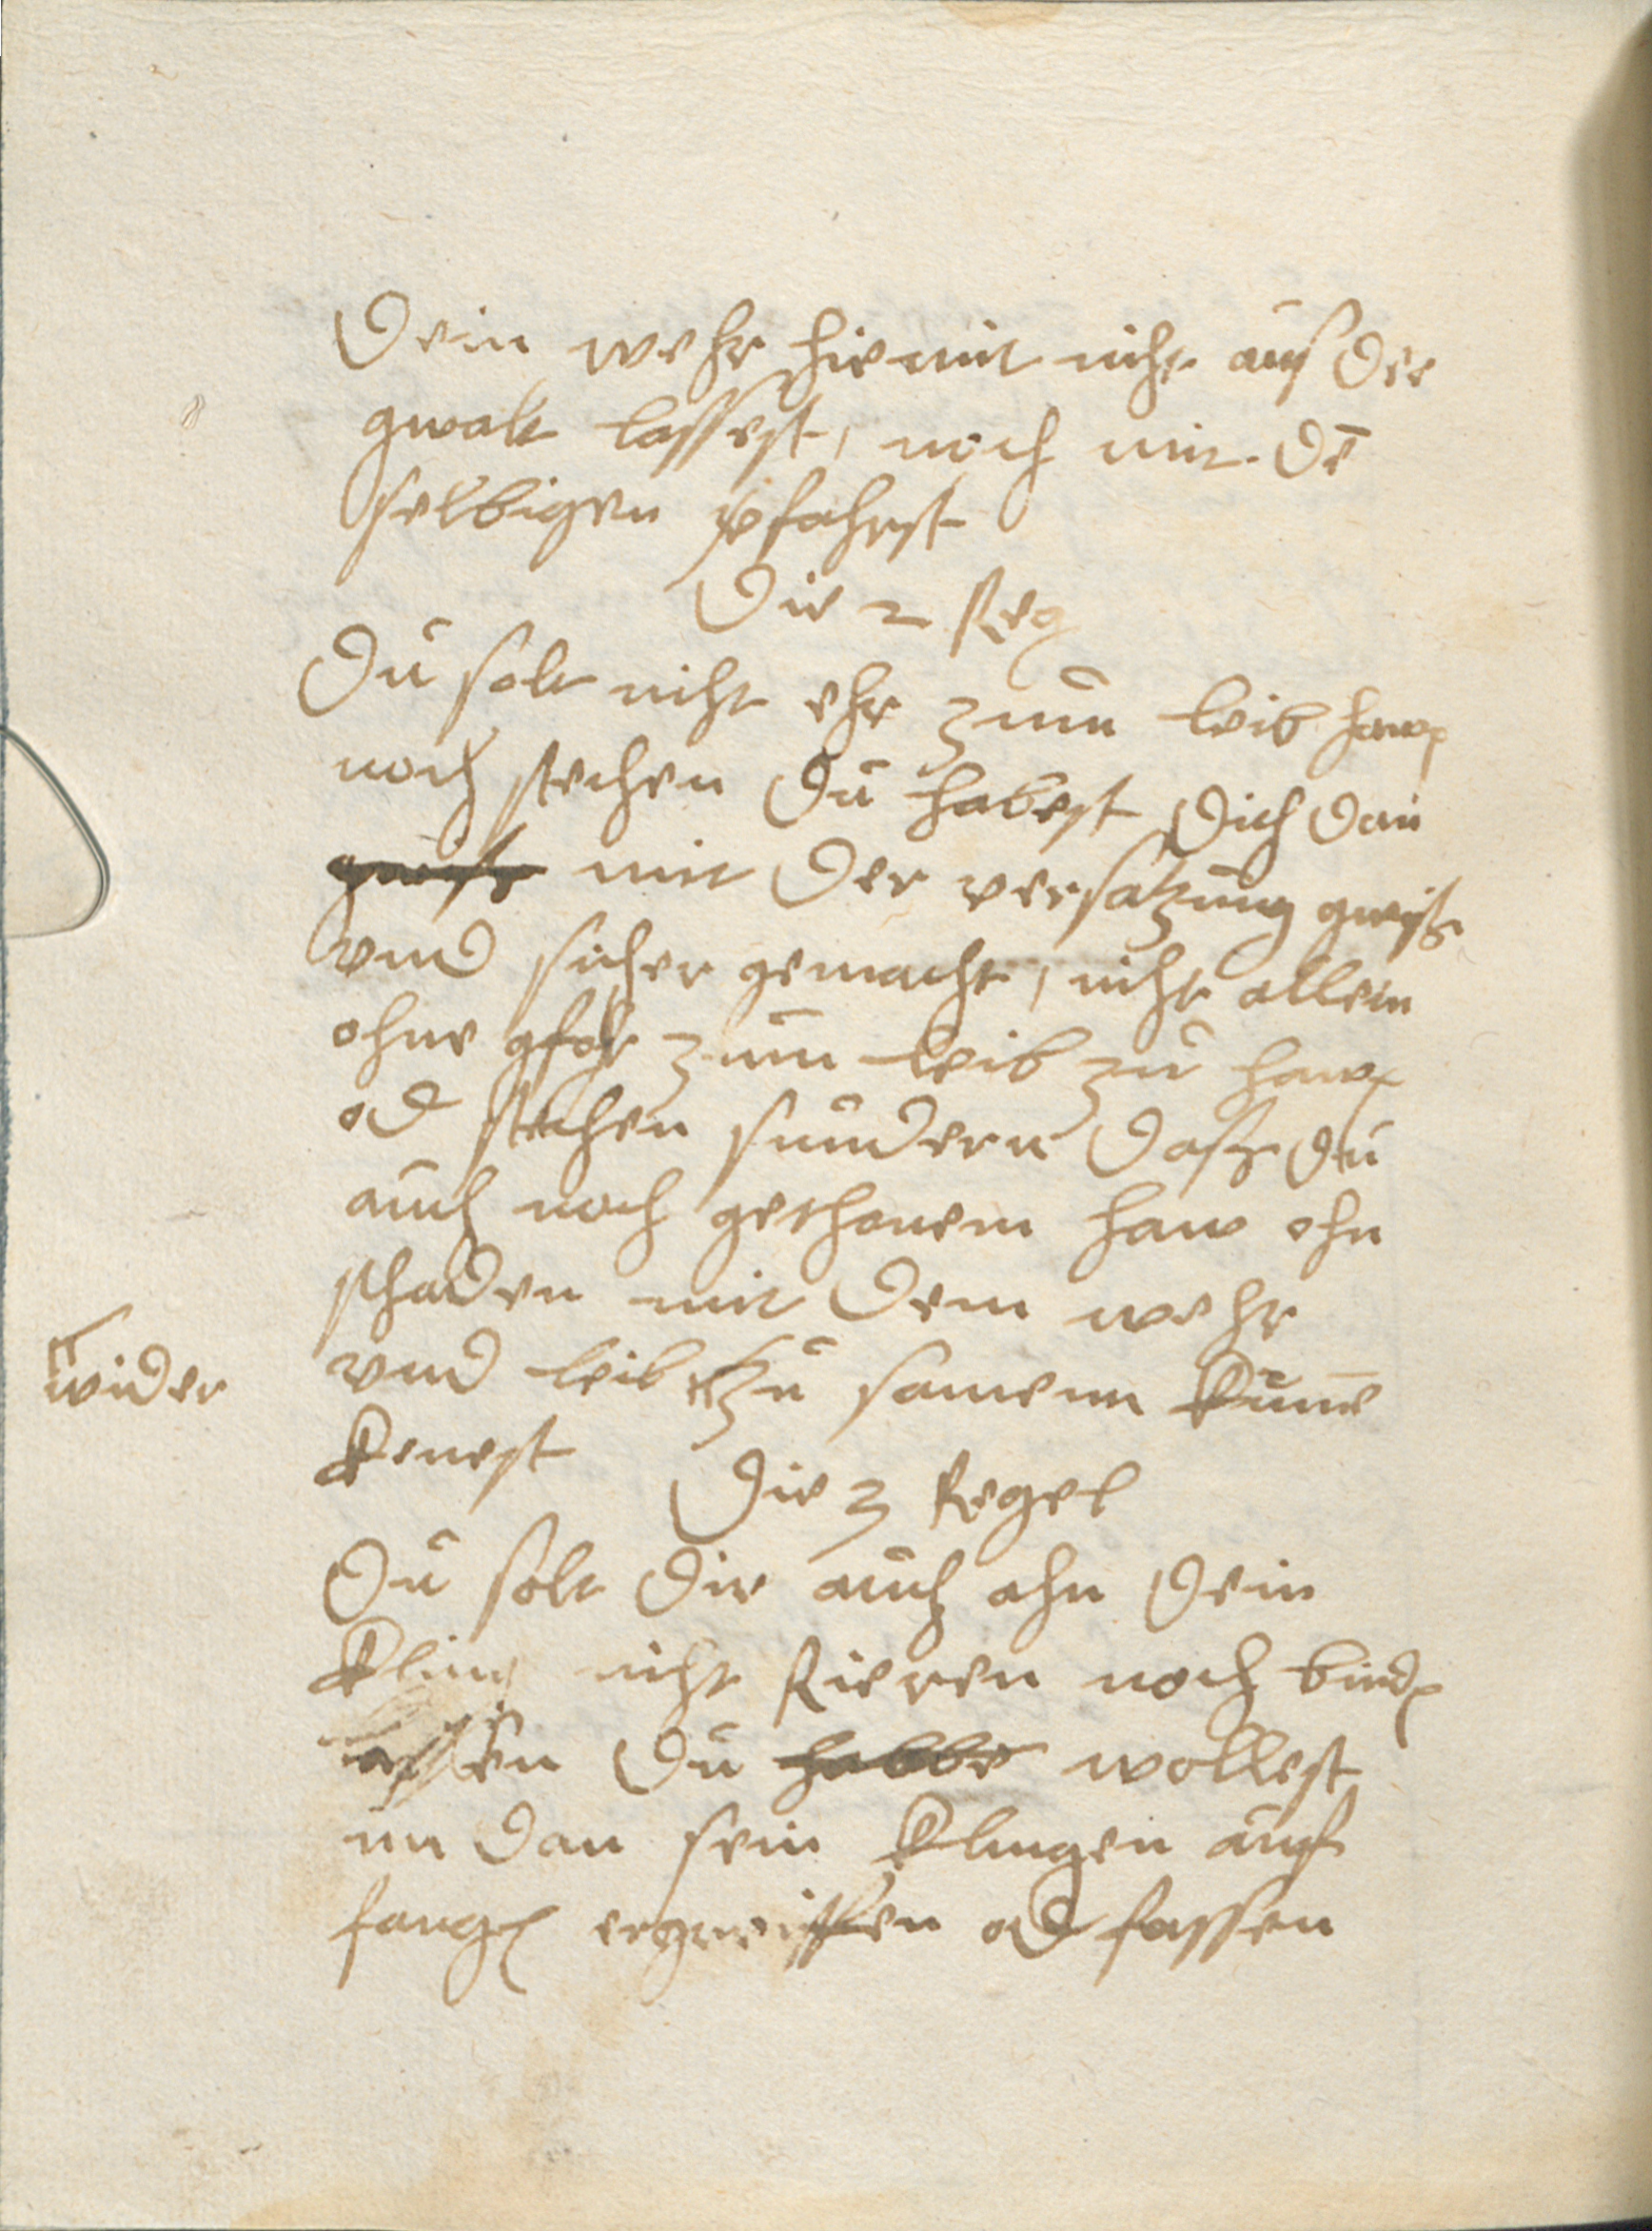 Dein wehr hiemit nicht aus der
gwalt lassest, noch mit dē
selbigen pfahrst
Die 2 Reg
Du solt nicht ehr zum leib hawen
noch stechen du habest dich dan
gwiß mit der versatzung gwiß
vnd sicher gemacht, nicht allein
ohne gfahr zum leib zu hawen
od stechen sundern daß du
auch nach gethonem haw ohn
schaden mit dem wehr
wider vnd leib zu samenn kume
kenest
Die 3 Regel
Du solt dir auch ahn dein
kling nicht Rieren noch binden
lassen du habbe wollest
im dan sein klingen auf
fangen ergreiffen od fassen